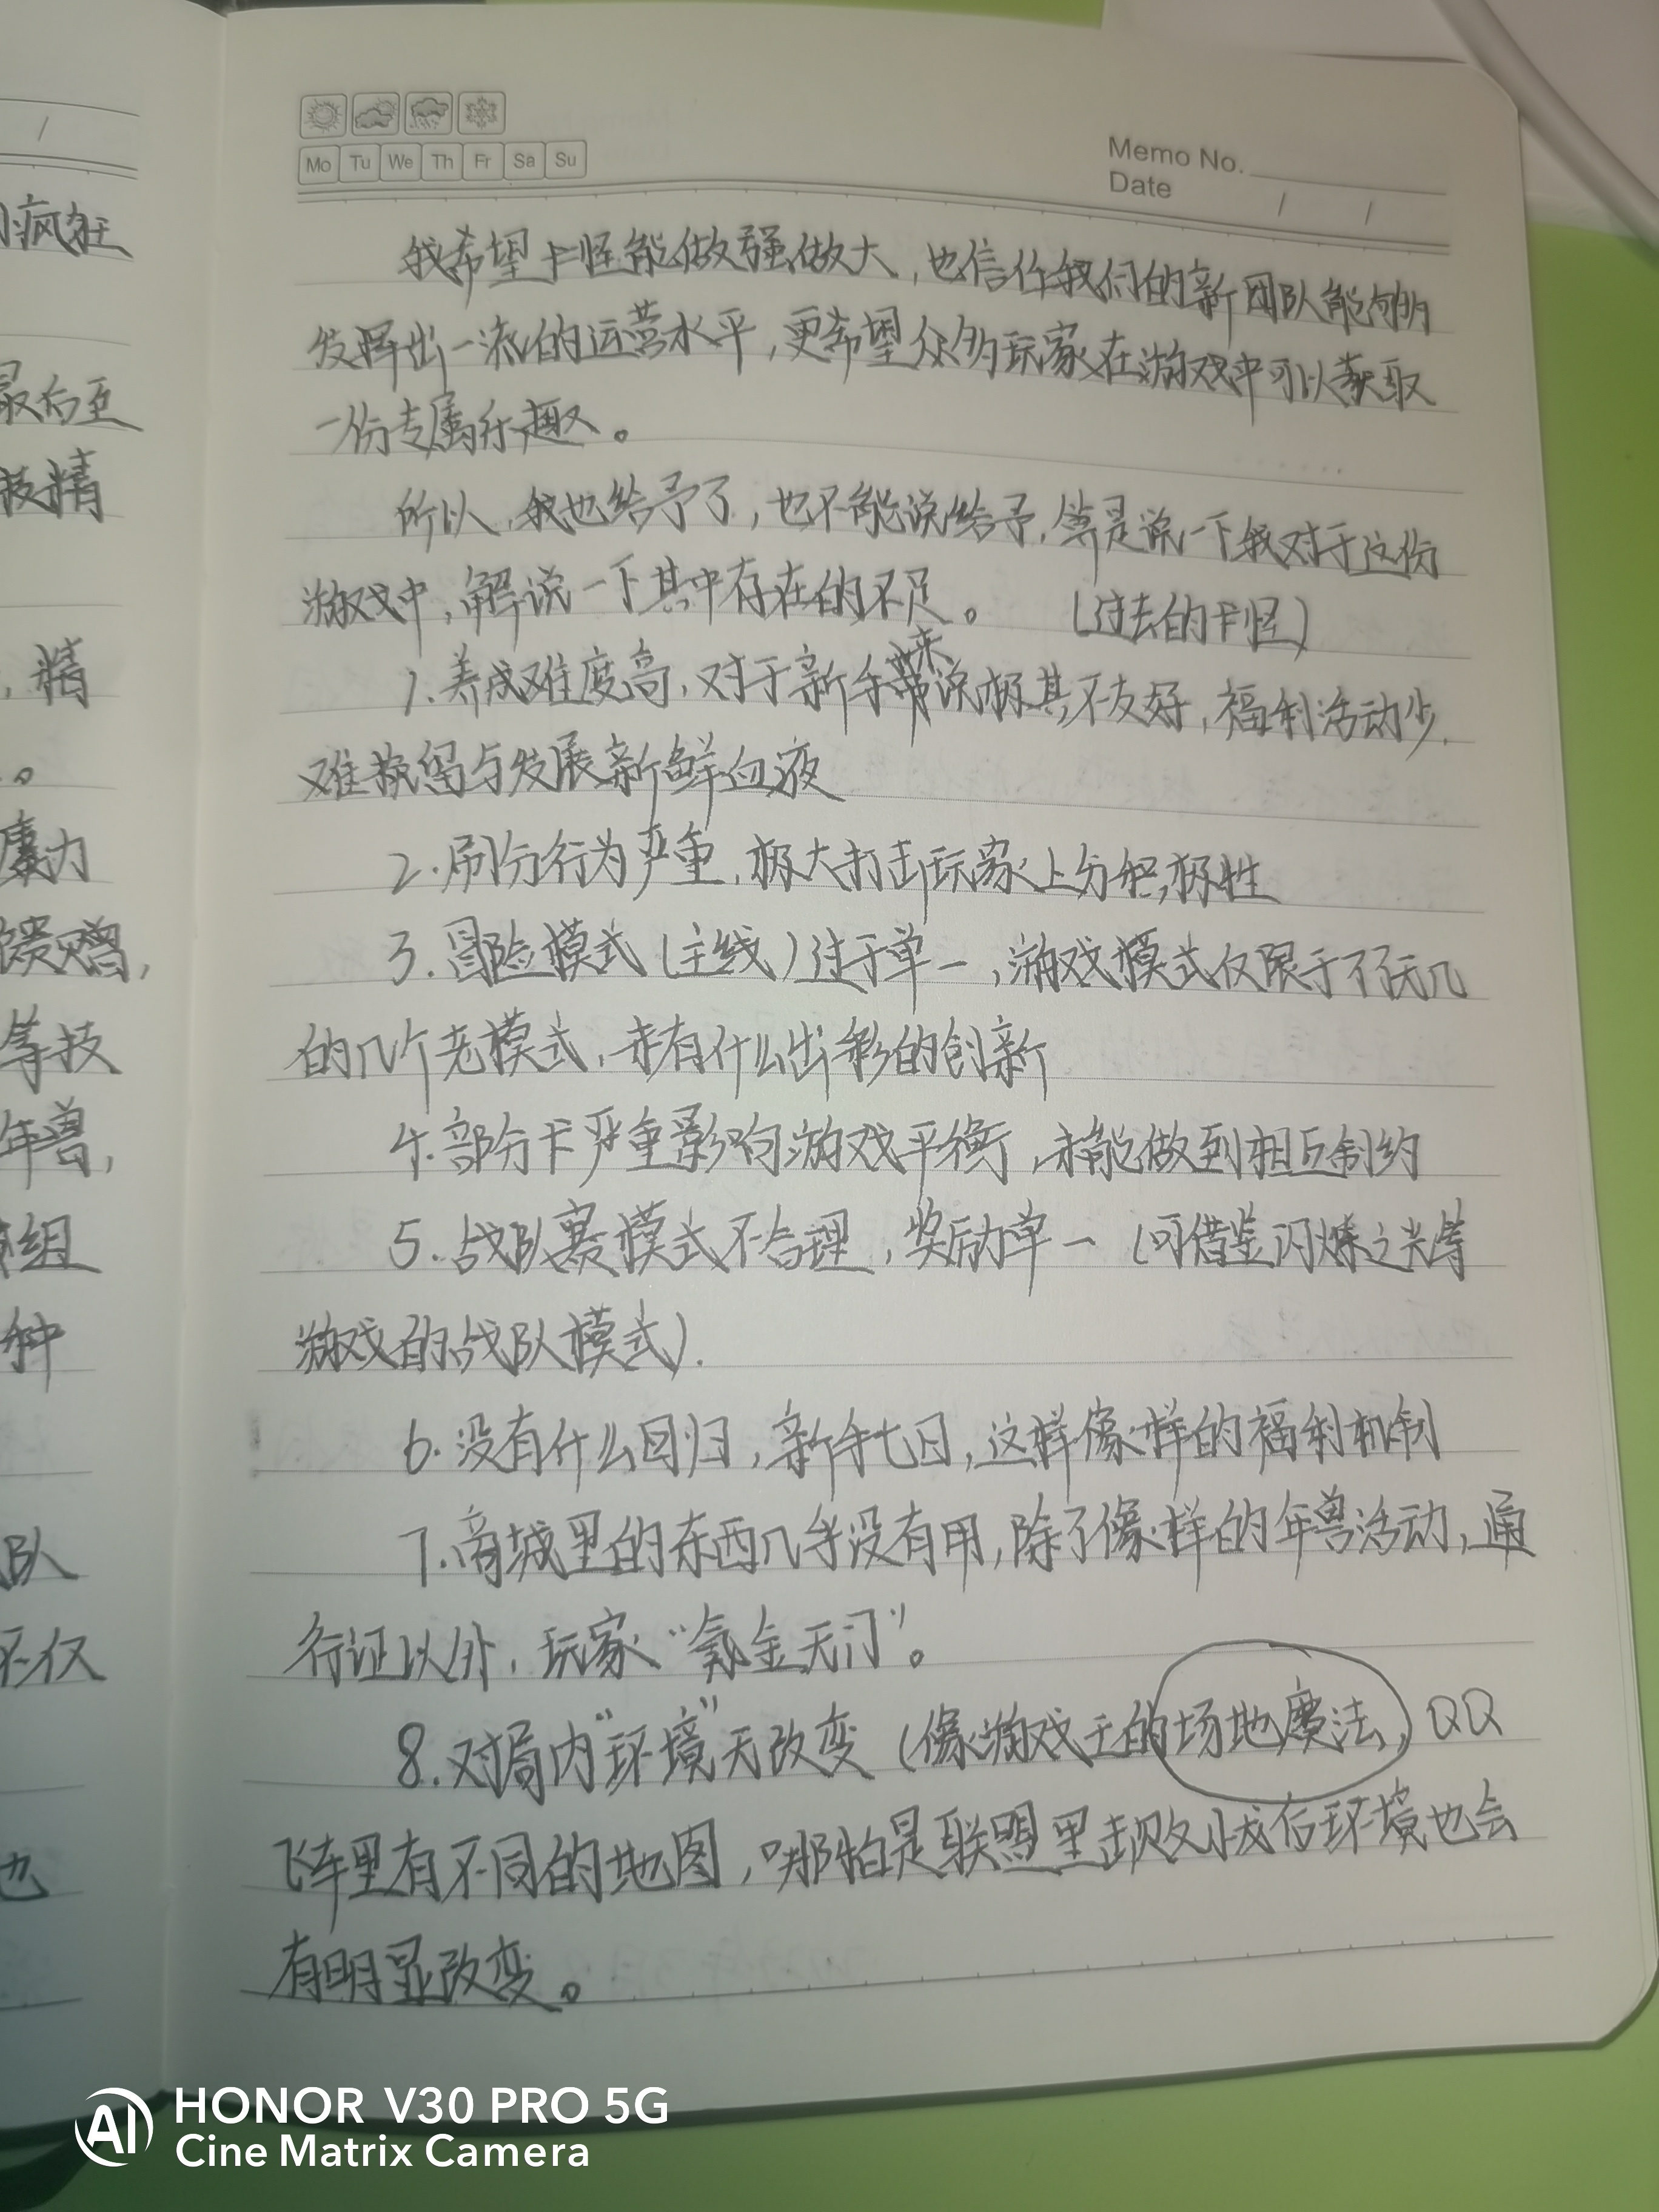 Mo Tu We Th Fr Sa Su
Memo No.
Date / /
我希望卡怪能做强做大,也信任我们的新团队能够
发挥出一流的运营水平,更希望众多玩家在游戏中可以获取
一份专属乐趣。
所以,我也给予了,也不能说给予,算是说一下我对于这份
游戏中,解说一下其中存在的不足。 (过去的卡怪)
1.养成难度高,对于新手来说极其不友好,福利活动少,
难挽留与发展新鲜血液
2.刷分行为严重,极大打击玩家上分积极性
3.冒险模式(主线)过于单一,游戏模式仅限于了无几
的几个老模式,未有什么出彩的创新
4.部分卡严重影响游戏平衡,未能做到相互制约
5.战队赛模式不合理,奖励单一(可借鉴闪烁之光等
游戏的战队模式).
6.没有什么回归,新手七日,这样像样的福利机制
7.商城里的东西几乎没有用,除了像样的年兽活动,通
行证以外,玩家“氪金无门”。
8.对局内“环境”无改变(像游戏王的场地魔法,QQ
飞车里有不同的地图,哪怕是联盟里击败小龙后环境也会
有明显改变。
/
疯狂
最后至
技精
,精
。
魔力
馈赠,
等技
年兽,
组
种
队
不仅
也
AI HONOR V30 PRO 5G
Cine Matrix Camera